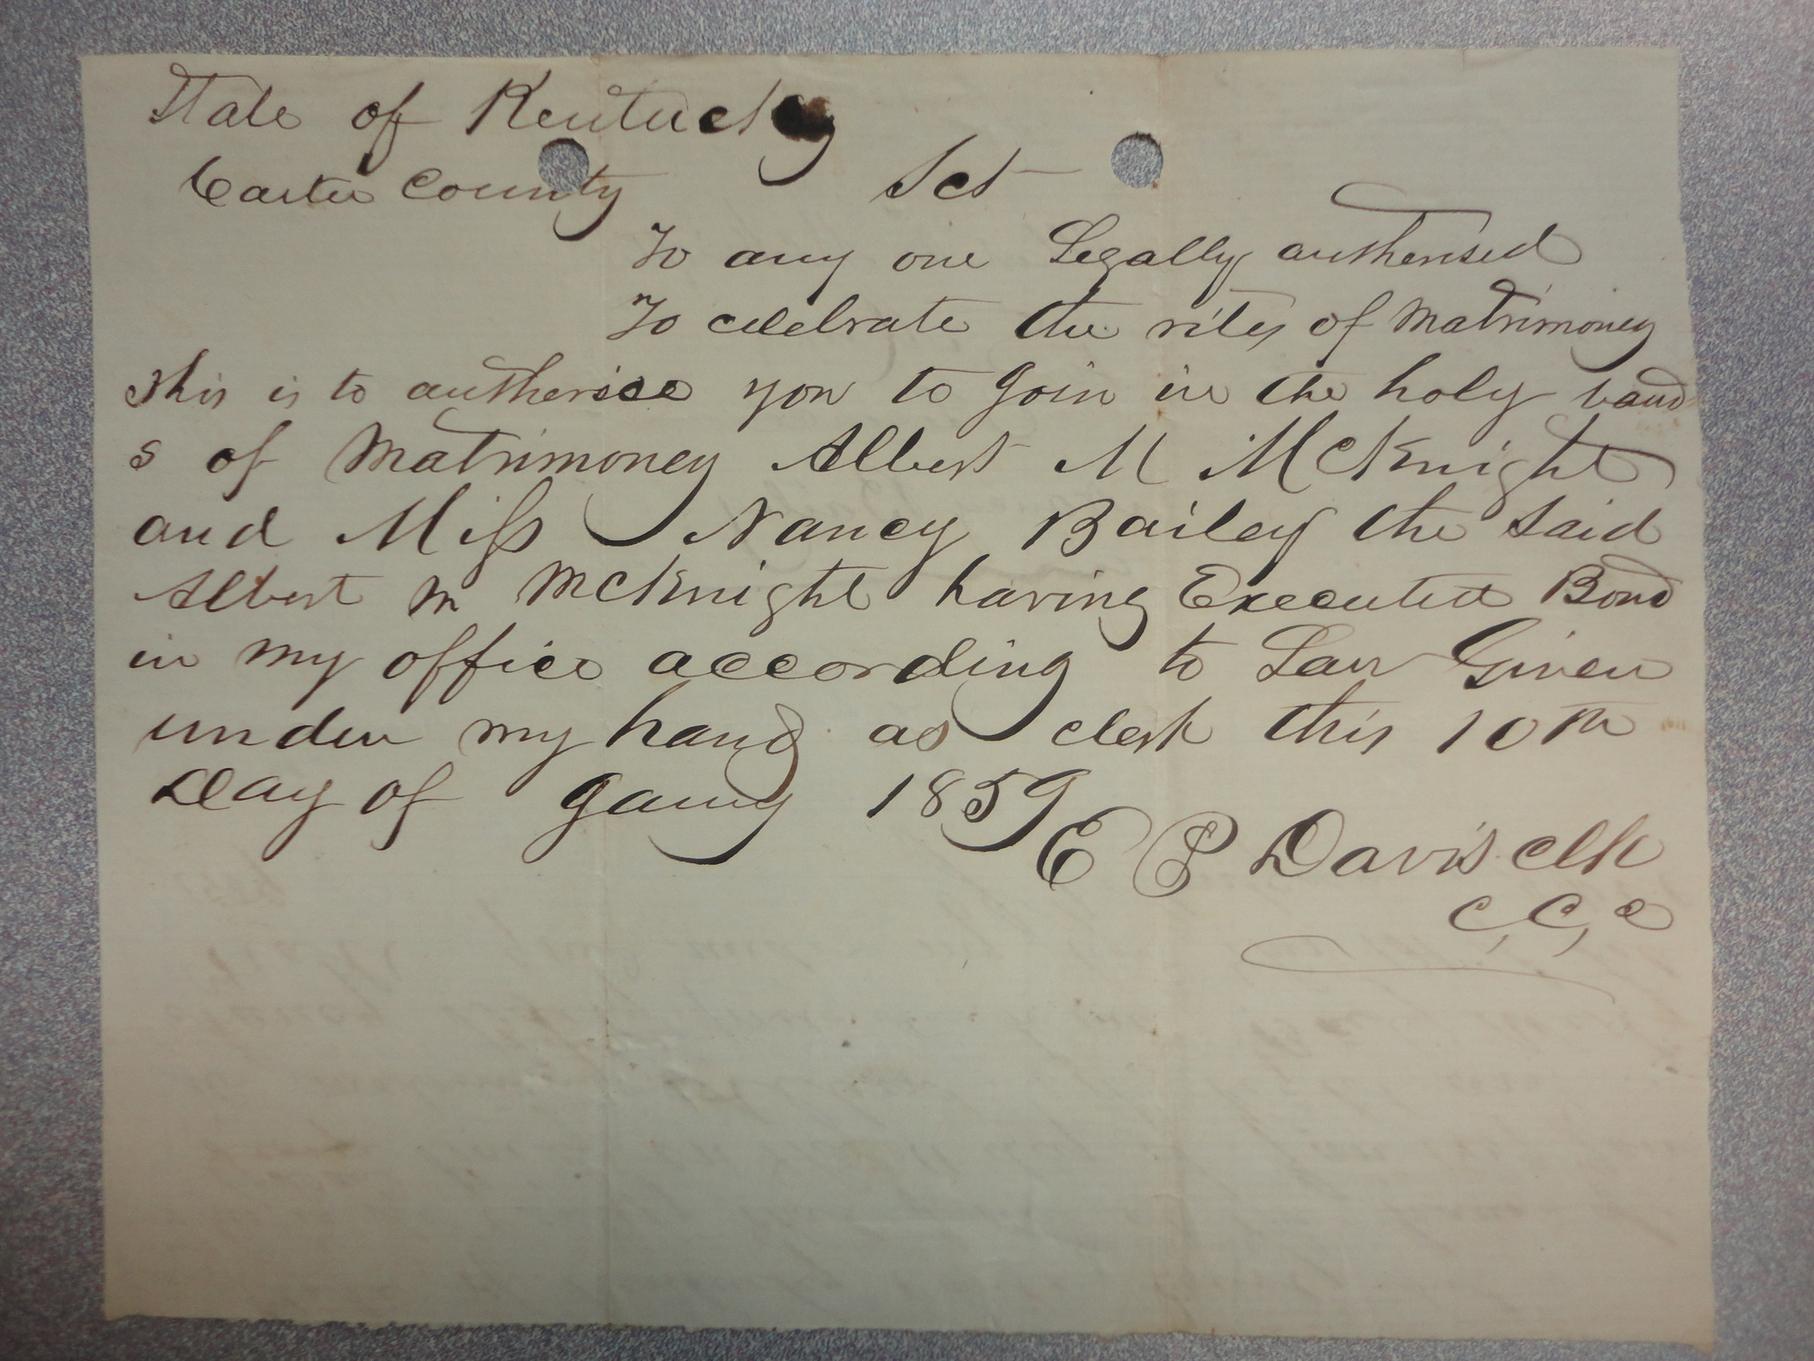 State of Kentucky
Carter County Sct
To any one Legally authorised
To celebrate the rites of Matrimoney
This is to autherise you to Join in the holy band
s of Matrimoney Albert M McKnight
and Miss Nancy Bailey the said
Albert M McKnight having Executed Bond
in my office according to Law Given
under my hand as clerk this 10th
Day of Jany 1859
E P Davis clk
C, C, C